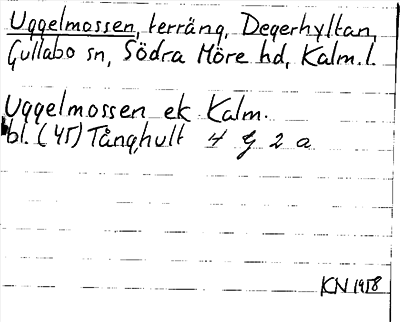 Uggelmossen, terräng, Degerhyltan,
Gullabo sn, Södra Möre hd, Kalm. l.
Uggelmossen ek Kalm.
bl. (45) Tånghult 4 G 2 a
KN 1958